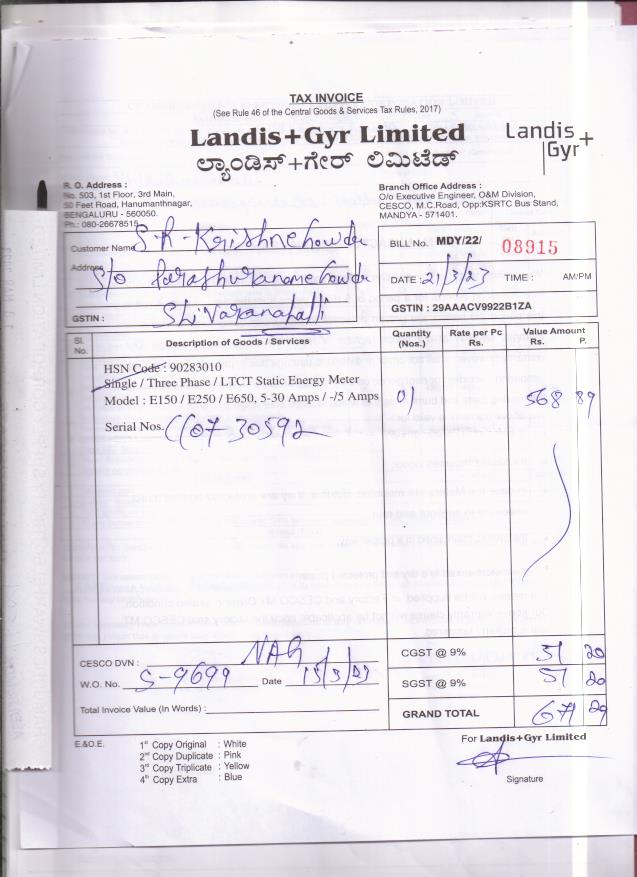 TAX INVOICE
(See Rule 46 of the Central Goods & Services Tax Rules, 2017)
Landis+Gyr Limited
Landis+
Gyr
ಲ್ಯಾಂಡಿಸ್+ಗೇರ್ ಲಿಮಿಟೆಡ್
R. O. Address :
No. 503, 1st Floor, 3rd Main,
50 Feet Road, Hanumanthnagar,
BENGALURU - 560050.
Ph.: 080-26678515
Branch Office Address :
O/o Executive Engineer, O&M Division,
CESCO, M.C.Road, Opp:KSRTC Bus Stand,
MANDYA - 571401.
Customer Name S-R-Krishnechowda
Address S/o Parashuramachowda
GSTIN : Shivaranapalli
BILL No. MDY/22/ 08915
DATE : 21/3/23 TIME : AM/PM
GSTIN : 29AAACV9922B1ZA
Sl. No. Description of Goods / Services Quantity (Nos.) Rate per Pc Rs. Value Amount Rs. P.
HSN Code : 90283010
Single / Three Phase / LTCT Static Energy Meter
Model : E150 / E250 / E650, 5-30 Amps / -/5 Amps 01 568 89
Serial Nos. 0730592
CESCO DVN : NAG
W.O. No. S-9699 Date 15/3/23
Total Invoice Value (In Words) :
CGST @ 9% 51 20
SGST @ 9% 51 20
GRAND TOTAL 671 29
E.&O.E.
1st Copy Original : White
2nd Copy Duplicate : Pink
3rd Copy Triplicate : Yellow
4th Copy Extra : Blue
For Landis+Gyr Limited
Signature